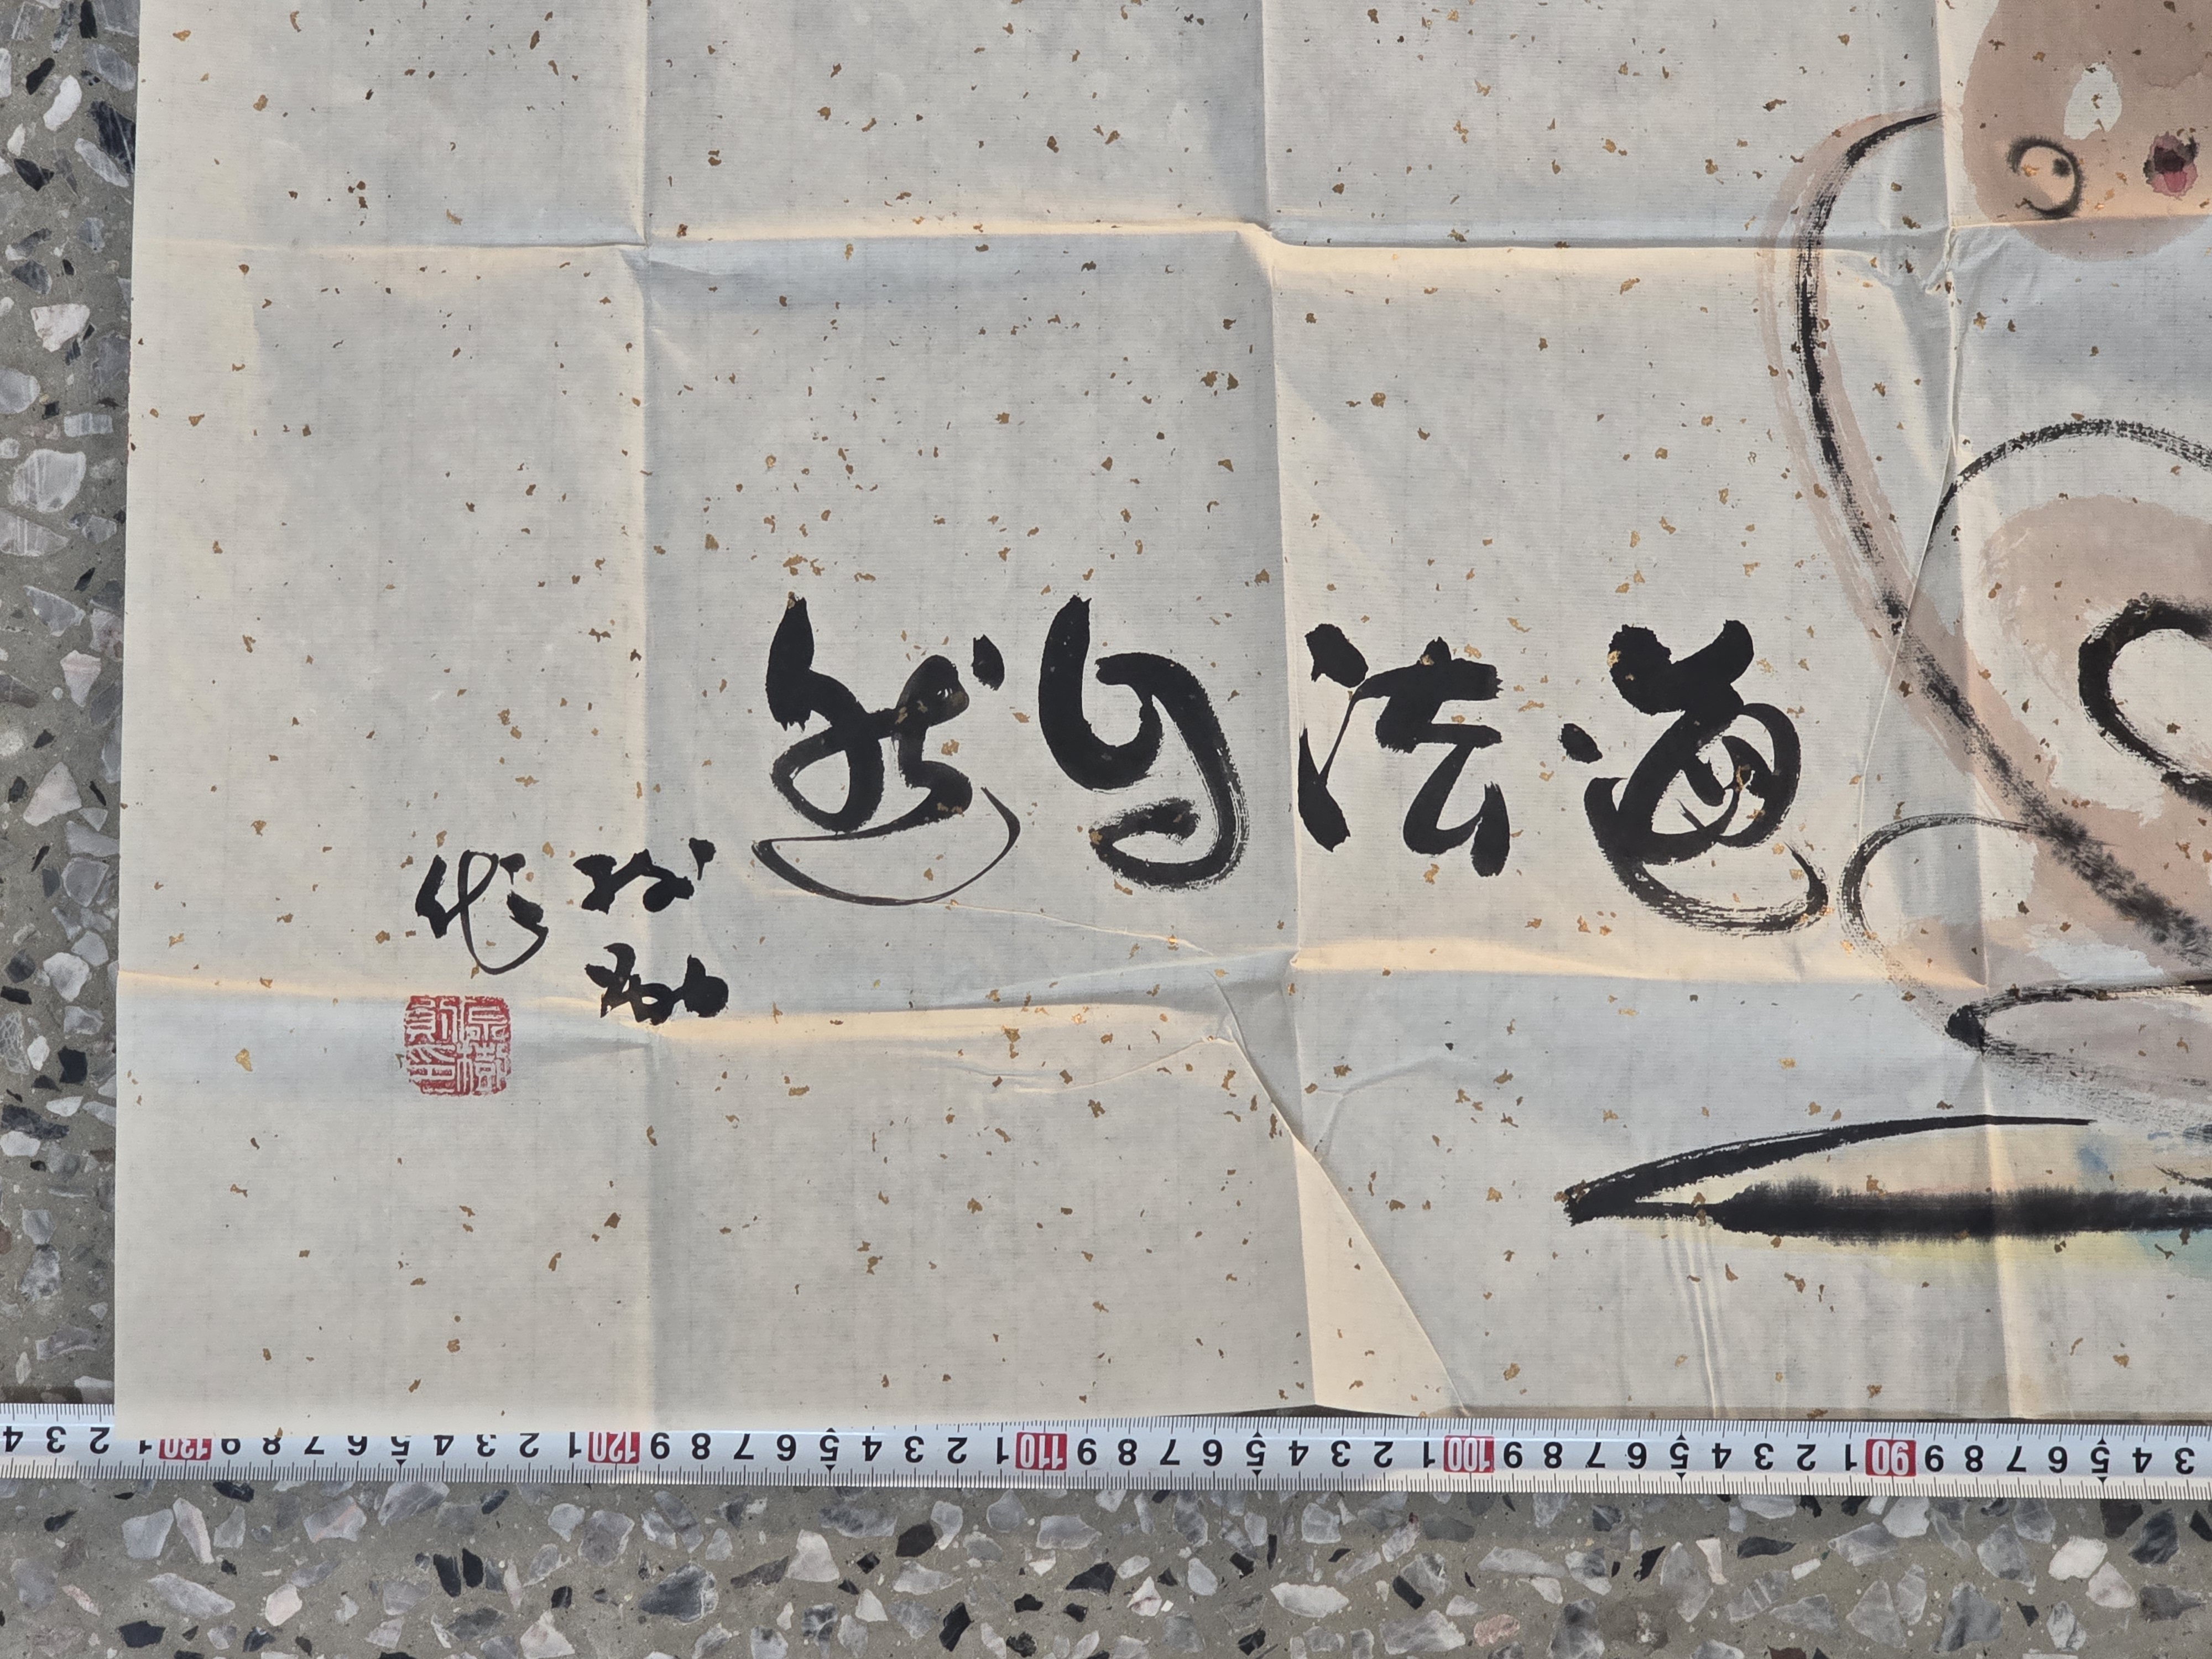 道法自然
作
3 4 5 6 7 8 9 90 1 2 3 4 5 6 7 8 9 100 1 2 3 4 5 6 7 8 9 110 1 2 3 4 5 6 7 8 9 120 1 2 3 4 5 6 7 8 9 130 1 2 3 4